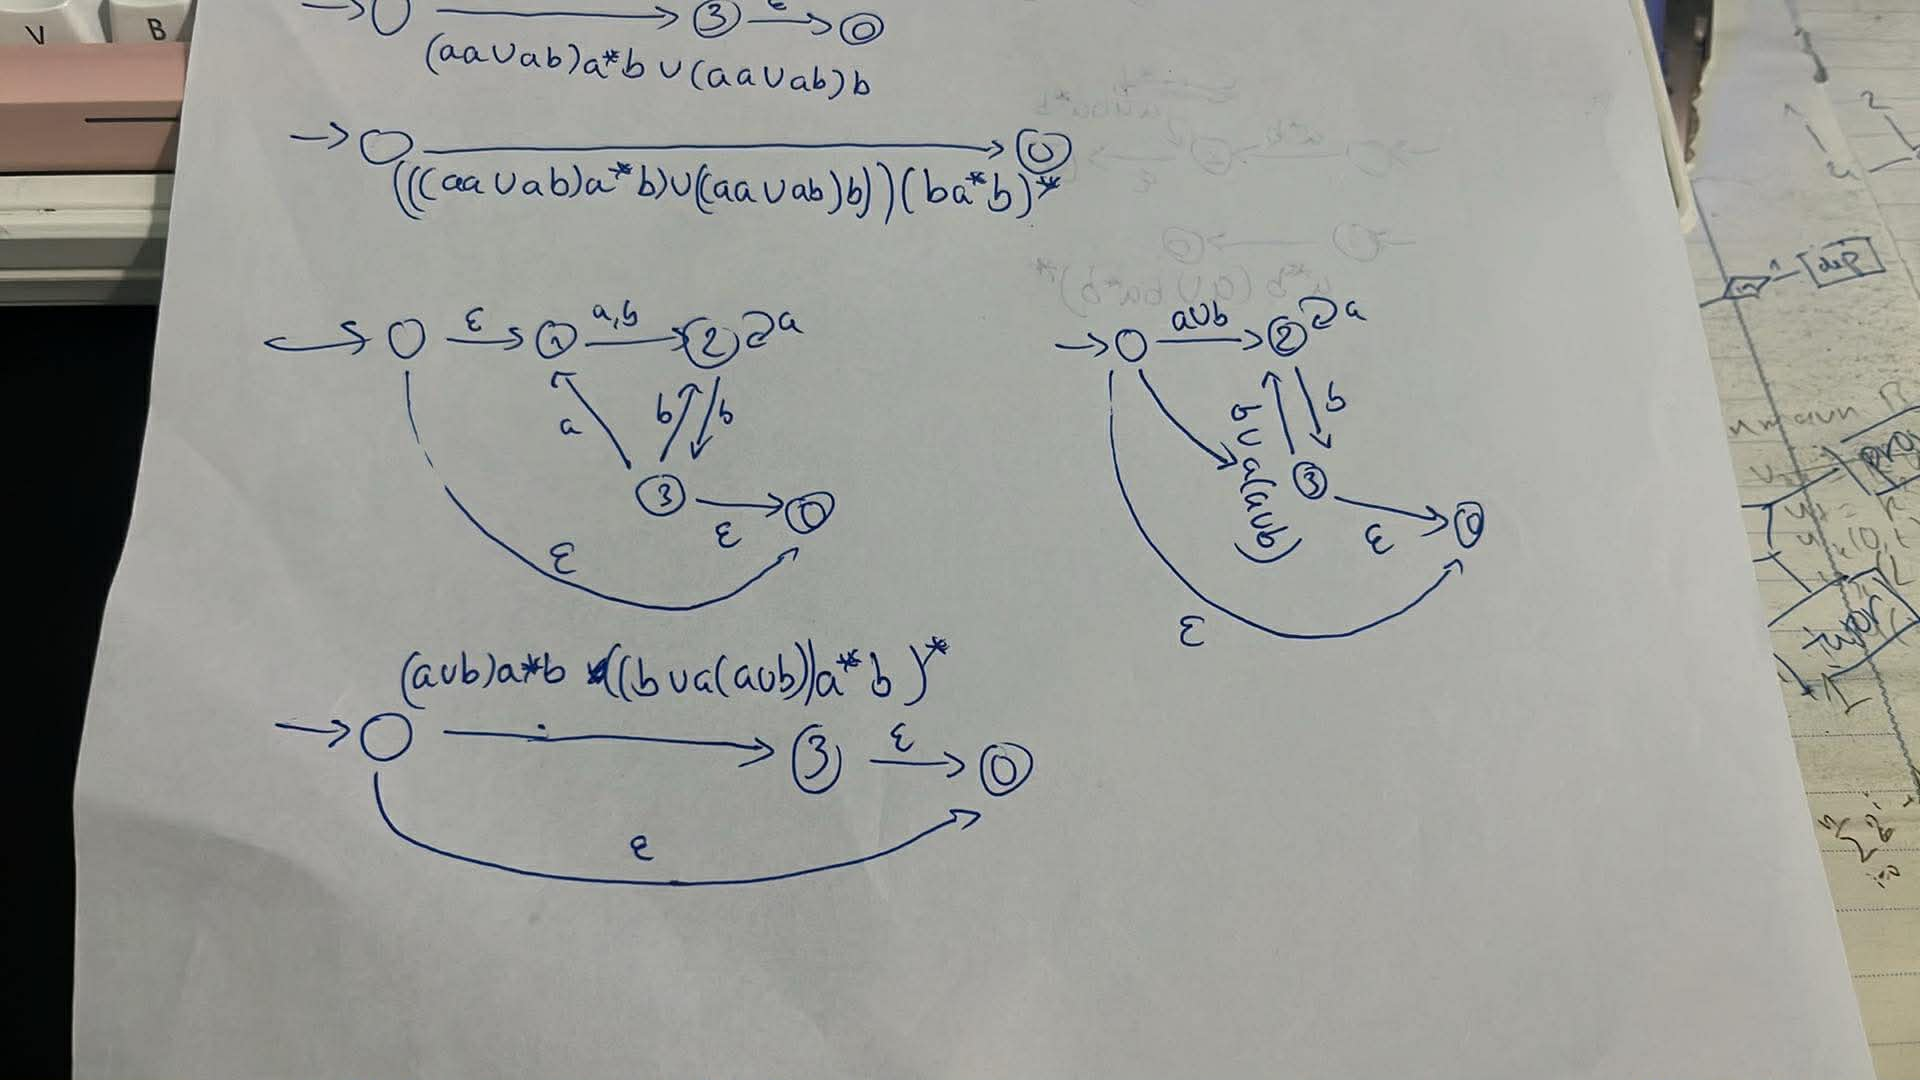 V B
3 ε
(aa∪ab)a*b ∪ (aa∪ab)b
(((aa∪ab)a*b)∪((aa∪ab)b))(ba*b)*
ε 1 a,b 2 a
a b b
3 ε
ε
a∪b 2 a
b∪a(a∪b) b
3 ε
ε
(a∪b)a*b ((b∪a(a∪b))a*b)*
3 ε
ε
2